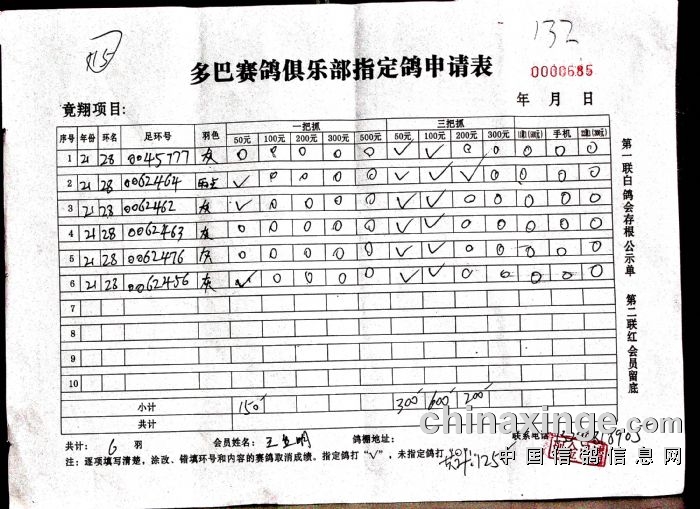 132
多巴赛鸽俱乐部指定鸽申请表
0000685
竟翔项目：
年 月 日
一把抓 三把抓
序号 年份 环名 足环号 羽色 50元 100元 200元 300元 500元 50元 100元 200元 300元 手机
1 21 28 0045777 灰 0 0 0 0 0 √ √ 0 0 0 0 0 0
2 21 28 0062464 雨点 √ 0 0 0 0 √ √ √ 0 0 0 0 0
3 21 28 0062462 灰 √ 0 0 0 0 √ √ 0 0 0 0 0 0
4 21 28 0062463 灰 0 0 0 0 0 √ √ 0 0 0 0 0 0
5 21 28 0062476 灰 0 0 0 0 0 √ √ 0 0 0 0 0 0
6 21 28 0062456 灰 √ 0 0 0 0 √ √ 0 0 0 0 0 0
7
8
9
10
小计 150 300 600 200
共计
共计： 6 羽 会员姓名： 鸽棚地址： 联系电话
注：逐项填写清楚，涂改、错填环号和内容的赛鸽取消成绩。指定鸽打“√”，未指定鸽打
共计：125
第一联白鸽会存根公示单 第二联红会员留底
chinaxinge.com
中国信鸽信息网